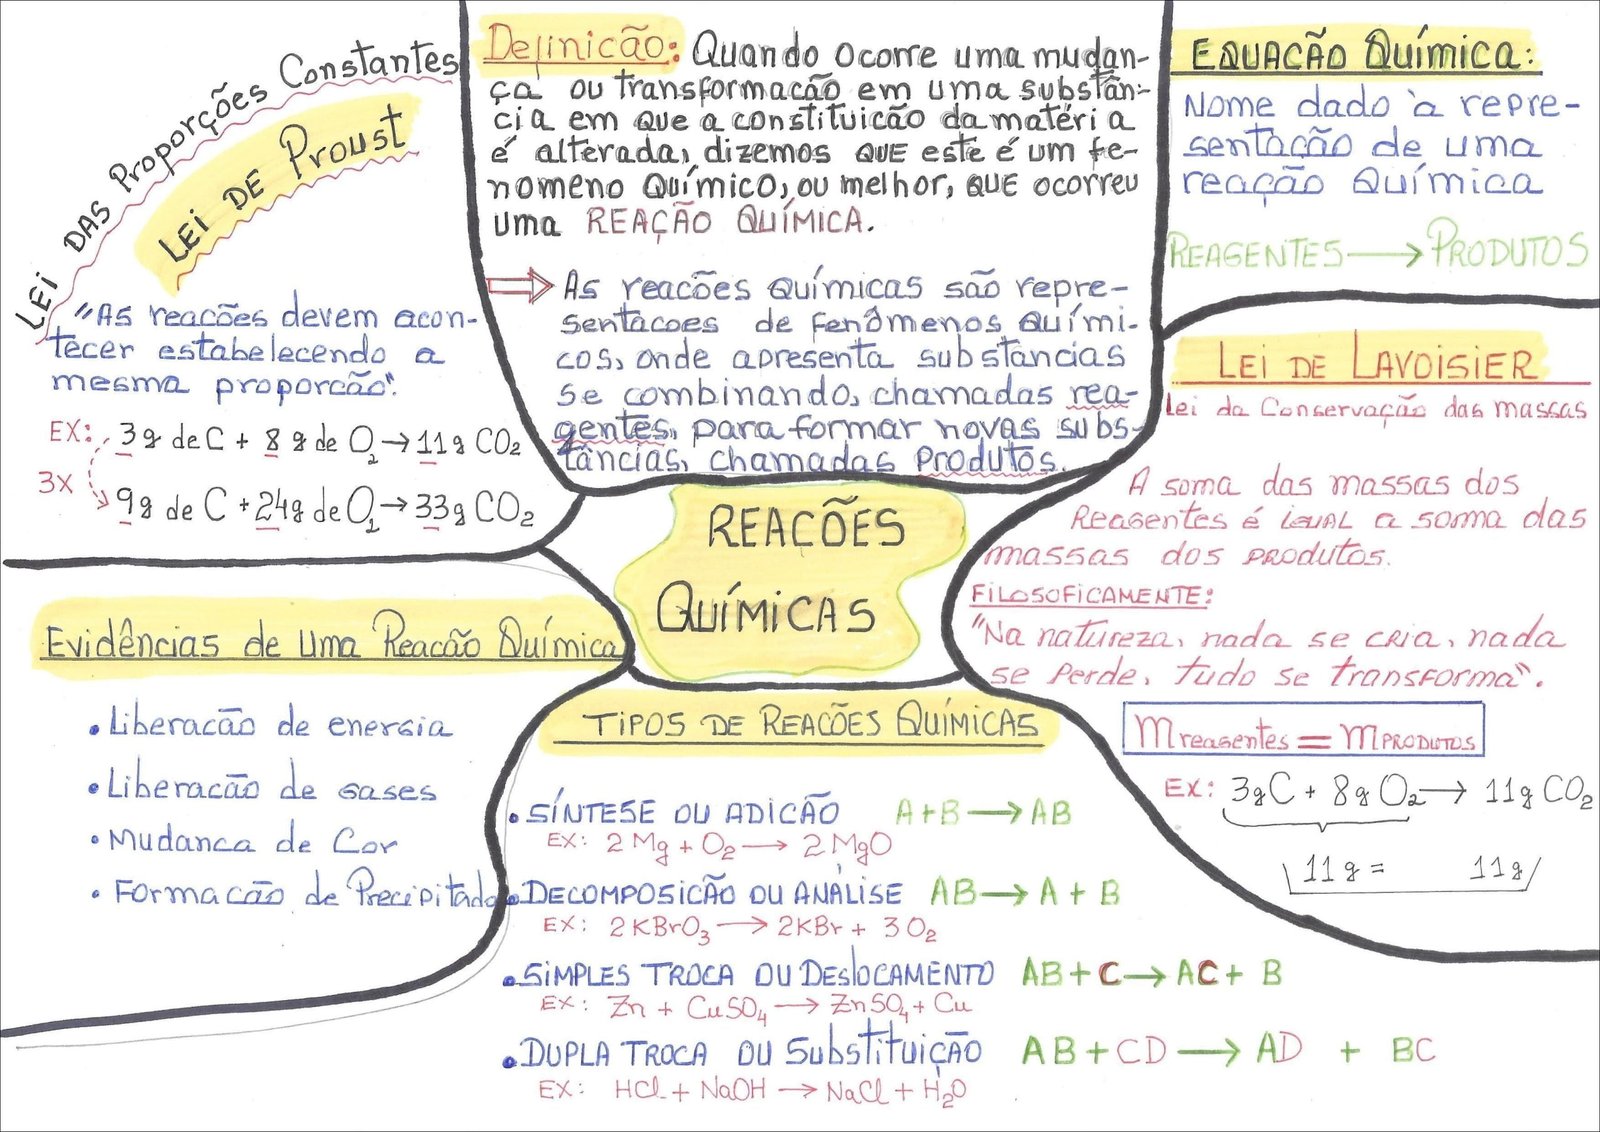 LEI DAS Proporções Constantes
LEI DE Proust
"As reacões devem acon-
tecer estabelecendo a
mesma proporcão".
EX: 3g de C + 8 g de O2 → 11g CO2
3X
9g de C + 24g de O2 → 33g CO2
Definicão: Quando ocorre uma mudan-
ça ou transformacão em uma substân-
cia em que a constituicão da matéria
é alterada, dizemos QUE este é um fe-
nomeno Químico, ou melhor, QUE ocorreu
uma REAÇÃO QUÍMICA.
As reacões Químicas são repre-
sentacoes de fenômenos Quími-
cos, onde apresenta substâncias
se combinando, chamadas rea-
gentes, para formar novas subs-
tâncias, chamadas produtos.
EQUACÃO Química:
Nome dado à repre-
sentação de uma
reação Química
REAGENTES → PRODUTOS
LEI DE LAVOISIER
Lei da Conservação das massas
A soma das massas dos
Reagentes é igual a soma das
massas dos produtos.
FILOSOFICAMENTE:
"Na natureza, nada se cria, nada
se perde, tudo se transforma".
Mreagentes = MPRODUTOS
EX: 3gC + 8g O2 → 11g CO2
11g = 11g
REACÕES
QUÍMICAS
Evidências de uma Reacão Química
• Liberacão de energia
• Liberacão de gases
• Mudanca de Cor
• Formacão de Precipitado
TIPOS DE REACÕES QUÍMICAS
• SÍNTESE OU ADICÃO A+B → AB
EX: 2 Mg + O2 → 2 MgO
• DECOMPOSICÃO OU ANÁLISE AB → A + B
EX: 2KBrO3 → 2KBr + 3O2
• SIMPLES TROCA OU DESLOCAMENTO AB + C → AC + B
EX: Zn + CuSO4 → ZnSO4 + Cu
• DUPLA TROCA OU Substituição AB + CD → AD + BC
EX: HCl + NaOH → NaCl + H2O